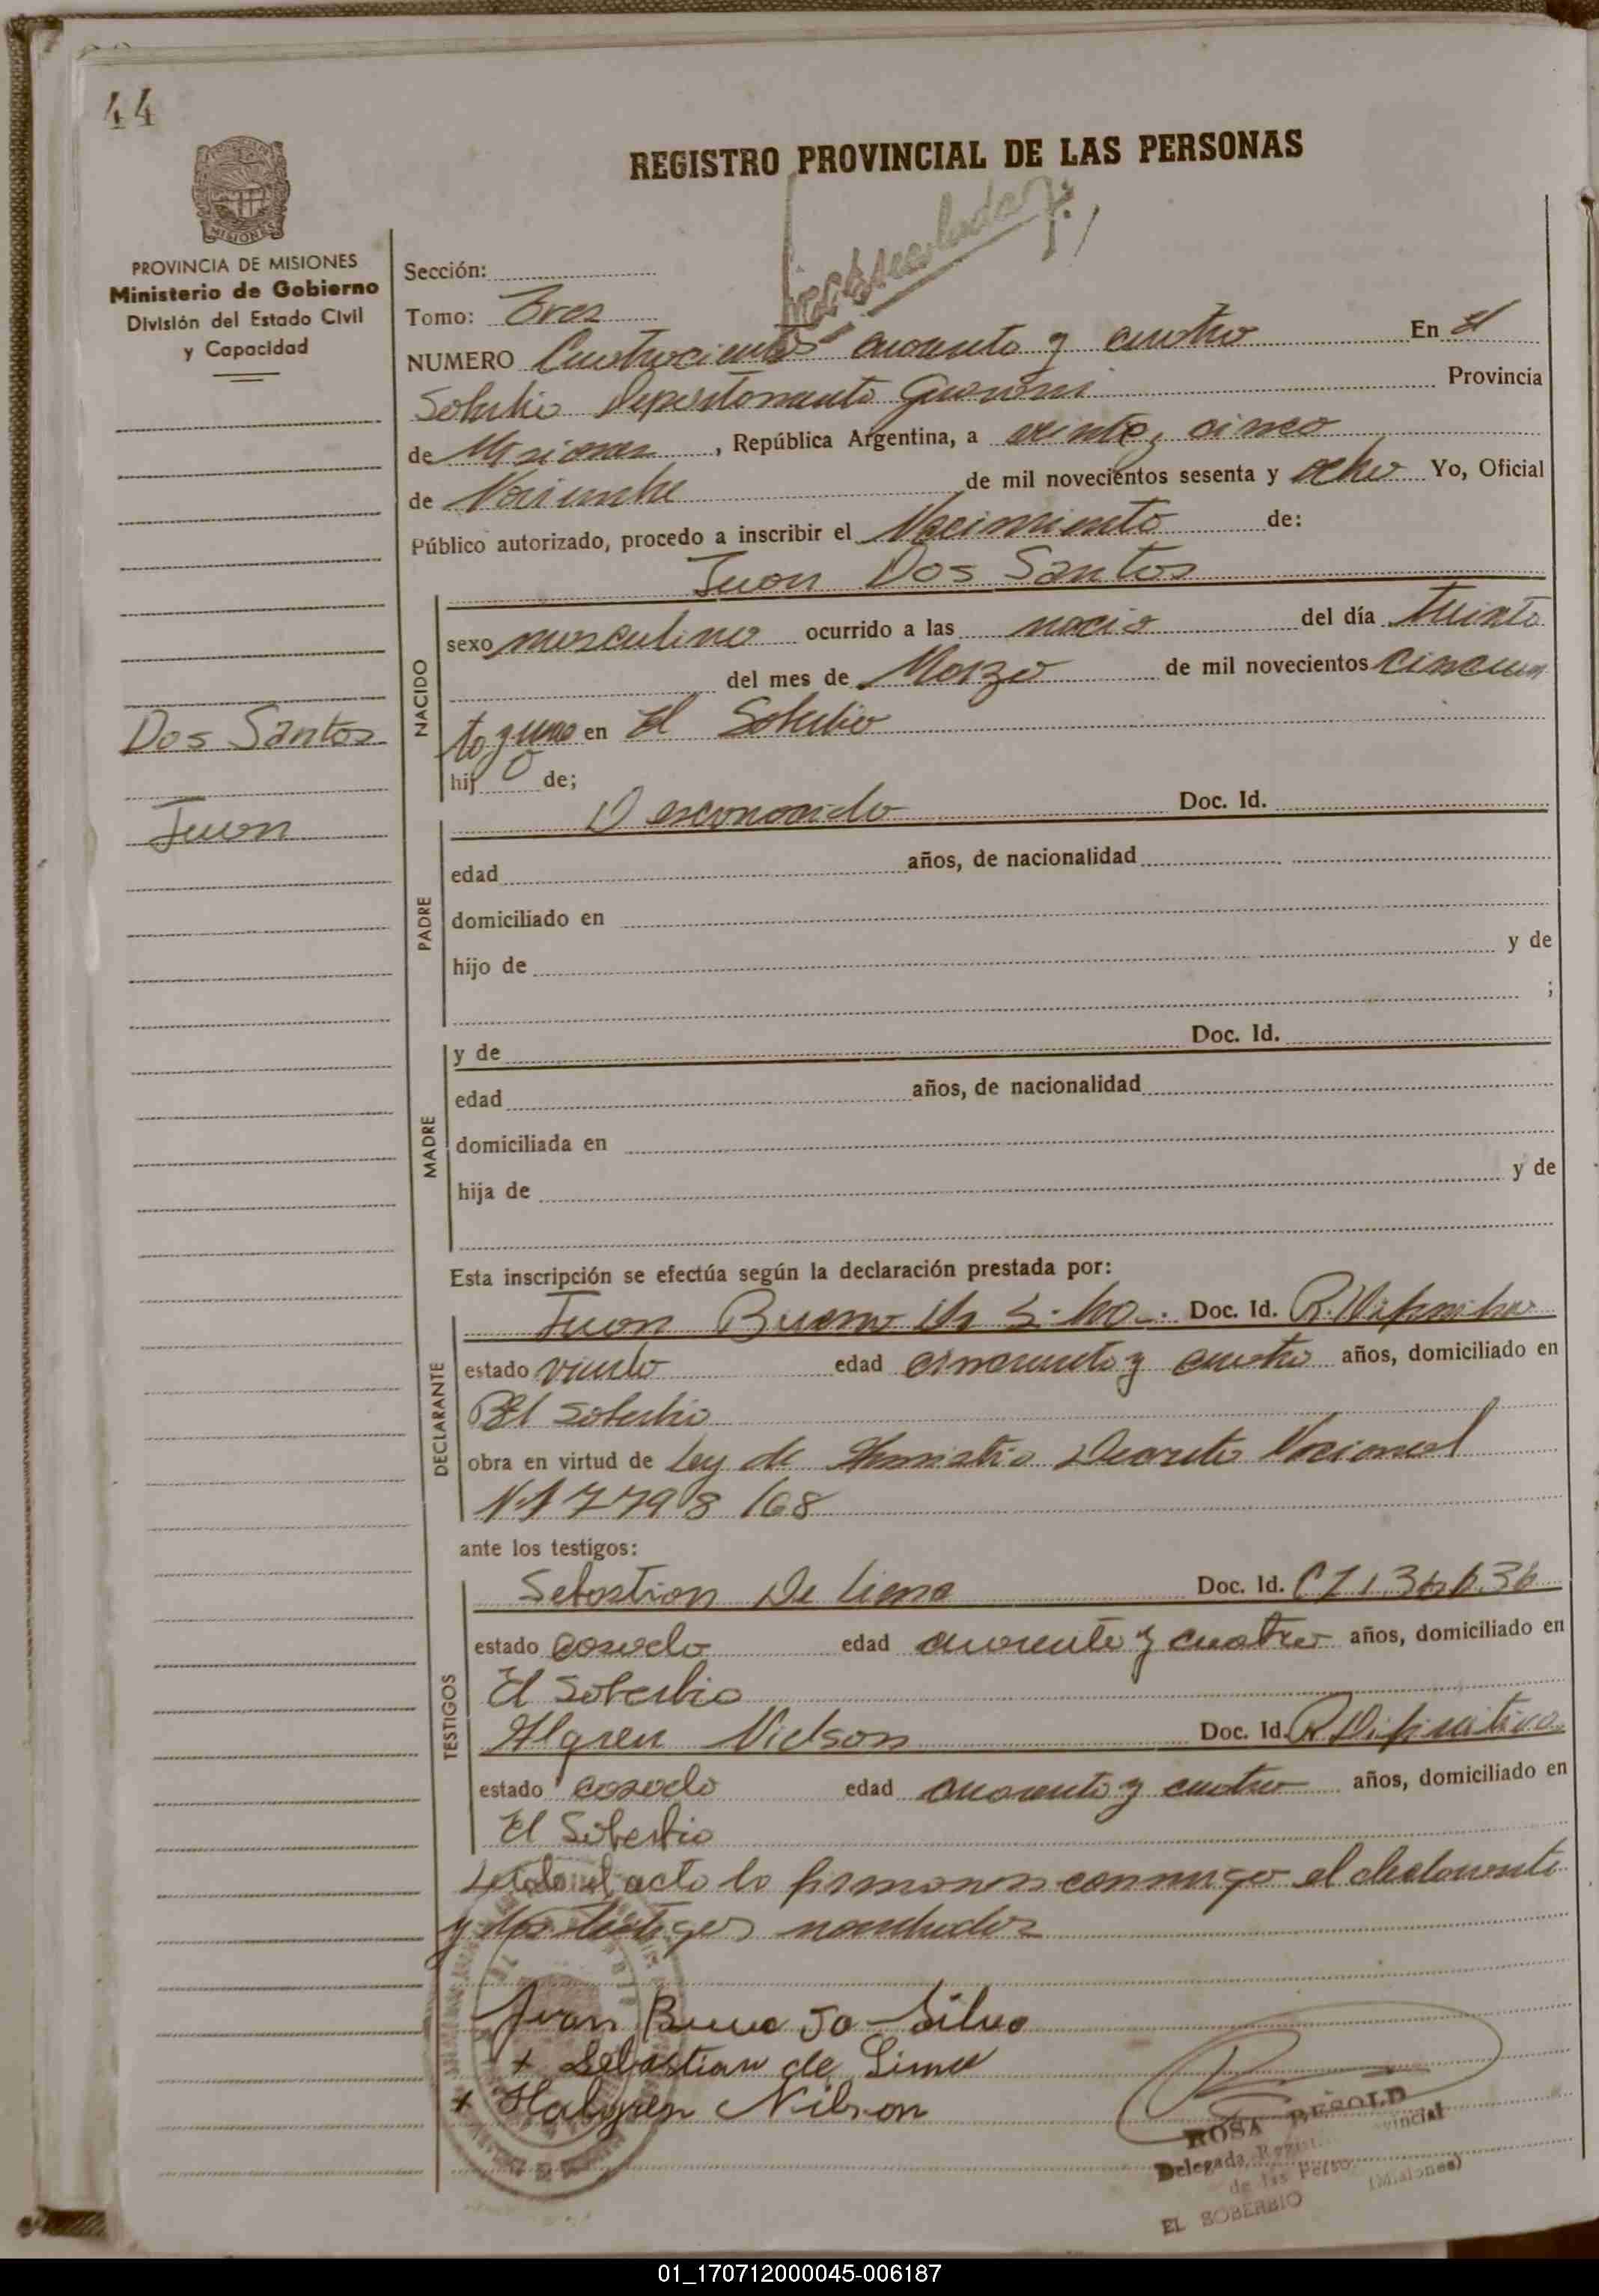 44
REGISTRO PROVINCIAL DE LAS PERSONAS
MISIONES
PROVINCIA DE MISIONES
Ministerio de Gobierno
División del Estado Civil
y Capacidad
Sección:
Tomo: Tres
NUMERO Cuatrocientos cuarenta y cuatro En El
Soberbio Departamento Guaraní Provincia
de Misiones, República Argentina, a veinte y cinco
de Noviembre de mil novecientos sesenta y ocho Yo, Oficial
Público autorizado, procedo a inscribir el Nacimiento de:
Juan Dos Santos
NACIDO
sexo masculino ocurrido a las nació del día treinta
del mes de Marzo de mil novecientos cincuen
ta y uno en El Soberbio
hijo de;
Dos Santos
Juan
PADRE
Desconocido Doc. Id.
edad años, de nacionalidad
domiciliado en
hijo de y de
;
MADRE
y de Doc. Id.
edad años, de nacionalidad
domiciliada en
hija de y de
Esta inscripción se efectúa según la declaración prestada por:
DECLARANTE
Juan Bueno Doc. Id.
estado viudo edad cincuenta y cuatro años, domiciliado en
El Soberbio
obra en virtud de Ley de Amnistia Decreto Nacional
N·17798/68
ante los testigos:
TESTIGOS
Sebastian De Lima Doc. Id.
estado casado edad cuarenta y cuatro años, domiciliado en
El Soberbio
Algren Nielson Doc. Id. R. Definitivo
estado casado edad cuarenta y cuatro años, domiciliado en
El Soberbio
acta la firmaron conmigo el declarante
y los testigos nombrados
Juan Bueno Da Silva
+ Sebastian de Lima
+ Halgren Nilson
ROSA BESOLD
Delegada Regist. Provincial
de las Perso (Misiones)
EL SOBERBIO
01_170712000045-006187